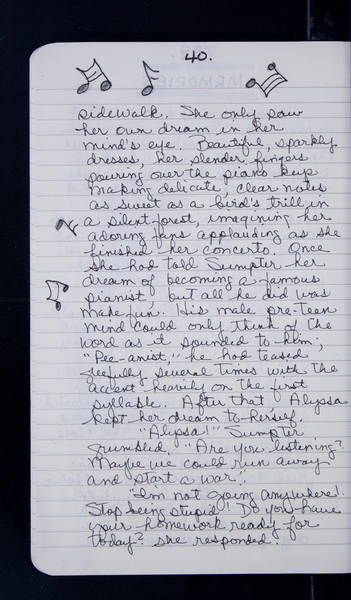 40.
sidewalk. She only saw
her own dream in her
mind's eye. Beautiful, sparkly
dresses, her slender fingers
pouring over the piano keys
making delicate, clear notes
as sweet as a bird's trill in
a silent forest, imagining her
adoring fans applauding as she
finished her concerto. Once
she had told Sumpter her
dream of becoming a famous
pianist, but all he did was
make fun. His male pre-teen
mind could only think of the
word as it sounded to him;
"Pee-anist," he had teased
gleefully several times with the
accent heavily on the first
syllable. After that Alyssa
kept her dream to herself.
"Alyssa!" Sumpter
grumbled. "Are you listening?
Maybe we could run away
and start a war."
"I'm not going anywhere!
Stop being stupid! Do you have
your homework ready for
today? she responded.